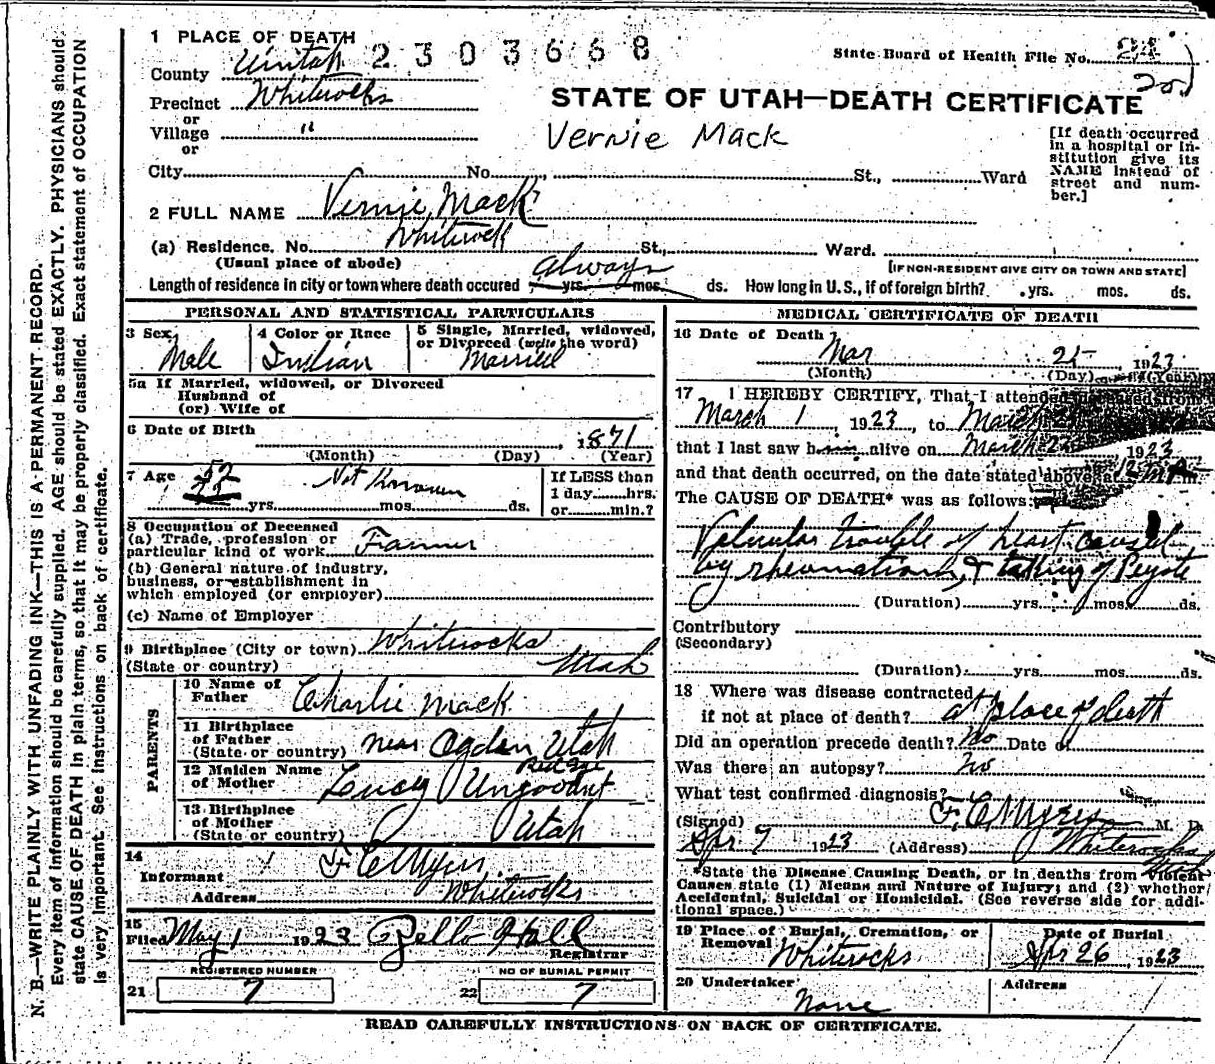 1 PLACE OF DEATH
County Uintah 2303668
State Board of Health File No. 24
201
Precinct Whiterocks
or
Village "
or
STATE OF UTAH—DEATH CERTIFICATE
Vernie Mack
[If death occurred in a hospital or institution give its NAME instead of street and number.]
City No. St., Ward
2 FULL NAME Vernie Mack
(a) Residence. No. Whiterock St., Ward.
(Usual place of abode) [IF NON-RESIDENT GIVE CITY OR TOWN AND STATE]
always
Length of residence in city or town where death occured yrs. mos. ds. How long in U.S., if of foreign birth? yrs. mos. ds.
PERSONAL AND STATISTICAL PARTICULARS
3 Sex Male
4 Color or Race Indian
5 Single, Married, widowed, or Divorced (write the word) Married
5a If Married, widowed, or Divorced
Husband of
(or) Wife of
6 Date of Birth , 1871
(Month) (Day) (Year)
7 Age 52 Not Known
yrs. mos. ds.
If LESS than
1 day hrs.
or min.?
8 Occupation of Deceased
(a) Trade, profession or
particular kind of work Farmer
(b) General nature of industry,
business, or establishment in
which employed (or employer)
(c) Name of Employer
9 Birthplace (City or town) Whiterocks
(State or country) Utah
PARENTS
10 Name of
Father Charlie Mack
11 Birthplace
of Father
(State or country) near Ogden Utah
12 Maiden Name
of Mother Lucy
13 Birthplace
of Mother
(State or country) Utah
14
Informant F C Myers
Address Whiterocks
15
Filed May 1 1923 Hall
Registrar
REGISTERED NUMBER
21 7
NO OF BURIAL PERMIT
22 7
MEDICAL CERTIFICATE OF DEATH
16 Date of Death Mar 25 1923
(Month) (Day) (Year)
17 I HEREBY CERTIFY, That I attended deceased from
March 1, 1923, to March
that I last saw h alive on March 1923
and that death occurred, on the date stated above, at 12 m.
The CAUSE OF DEATH* was as follows:
Valvular trouble of heart caused
by rheumatism, & taking of Peyote
(Duration) yrs. mos. ds.
Contributory
(Secondary)
(Duration) yrs. mos. ds.
18 Where was disease contracted
if not at place of death? at place of death
Did an operation precede death? No Date of
Was there an autopsy? no
What test confirmed diagnosis?
(Signed) F. C Myers M. D.
Apr 7 1923 (Address) Whiterocks
*State the Disease Causing Death, or in deaths from Violent
Causes state (1) Means and Nature of Injury; and (2) whether
Accidental, Suicidal or Homicidal. (See reverse side for addi-
tional space.)
19 Place of Burial, Cremation, or
Removal Whiterocks
Date of Burial
Apr 26, 1923
20 Undertaker
None
Address
READ CAREFULLY INSTRUCTIONS ON BACK OF CERTIFICATE.
N. B.—WRITE PLAINLY WITH UNFADING INK—THIS IS A PERMANENT RECORD.
Every item of information should be carefully supplied. AGE should be stated EXACTLY. PHYSICIANS should
state CAUSE OF DEATH in plain terms, so that it may be properly classified. Exact statement of OCCUPATION
is very important. See instructions on back of certificate.